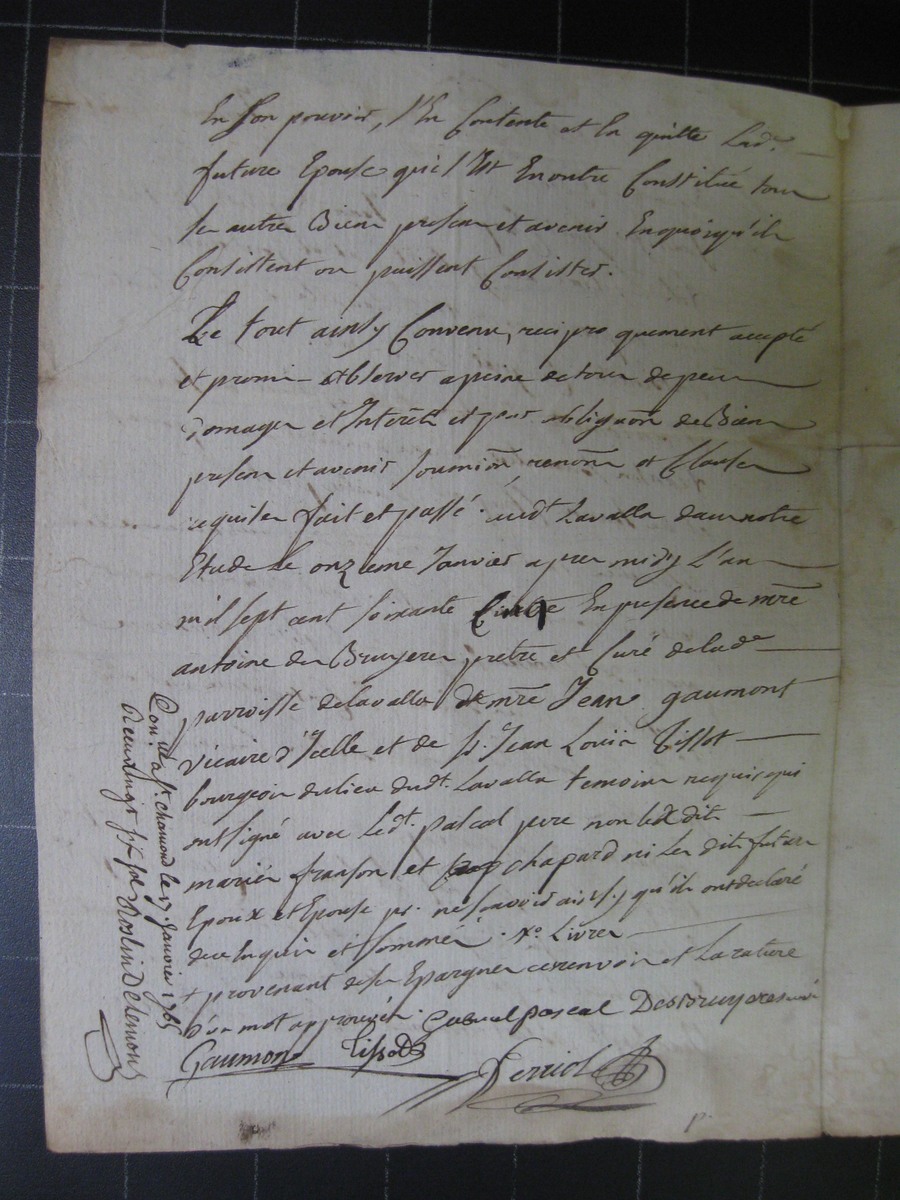 En son pouvoir, l'En Contente et En quitte Lade.
future Epouse qui s'Est En outre Constitué tous
ses autres Biens presens et avenir En quoi qu'ils
Consistent ou puissent Consister.
Le tout ainsy Convenu, reciproquement accepté
et promis observer a peine de tous depens
domages et Interets et par obligaon de Biens
presens et avenir soumison renonon et Clauses
requises fait et passé audt Lavalla dans notre
Etude le onzieme Janvier apres midy L'an
mil sept cent soixante Cinq En presence de mre
antoine des Bruyeres pretre et Curé de lade
parroisse de Lavalla de mre Jean gaumont
vicaire d'Icelle et de sr. Jean Louis Tissot
bourgeois du lieu dudt. Lavalla temoins requis qui
ont signé avec Ledt. pascal pere non les dits
mariés franson et chapard ni les dits futurs
Epoux et Epouse pr. ne scavoir ainsy qu'ils ont declaré
de ce Enquis et sommés. Livres
+ provenant de ses Epargnes ce renvoir et La rature
D'un mot approuvés. Gabriel pascal DesBruyeres curé
Gaumont Tissot Ferriol
p.
Con. a st. chamond le 17 Janvier 1765